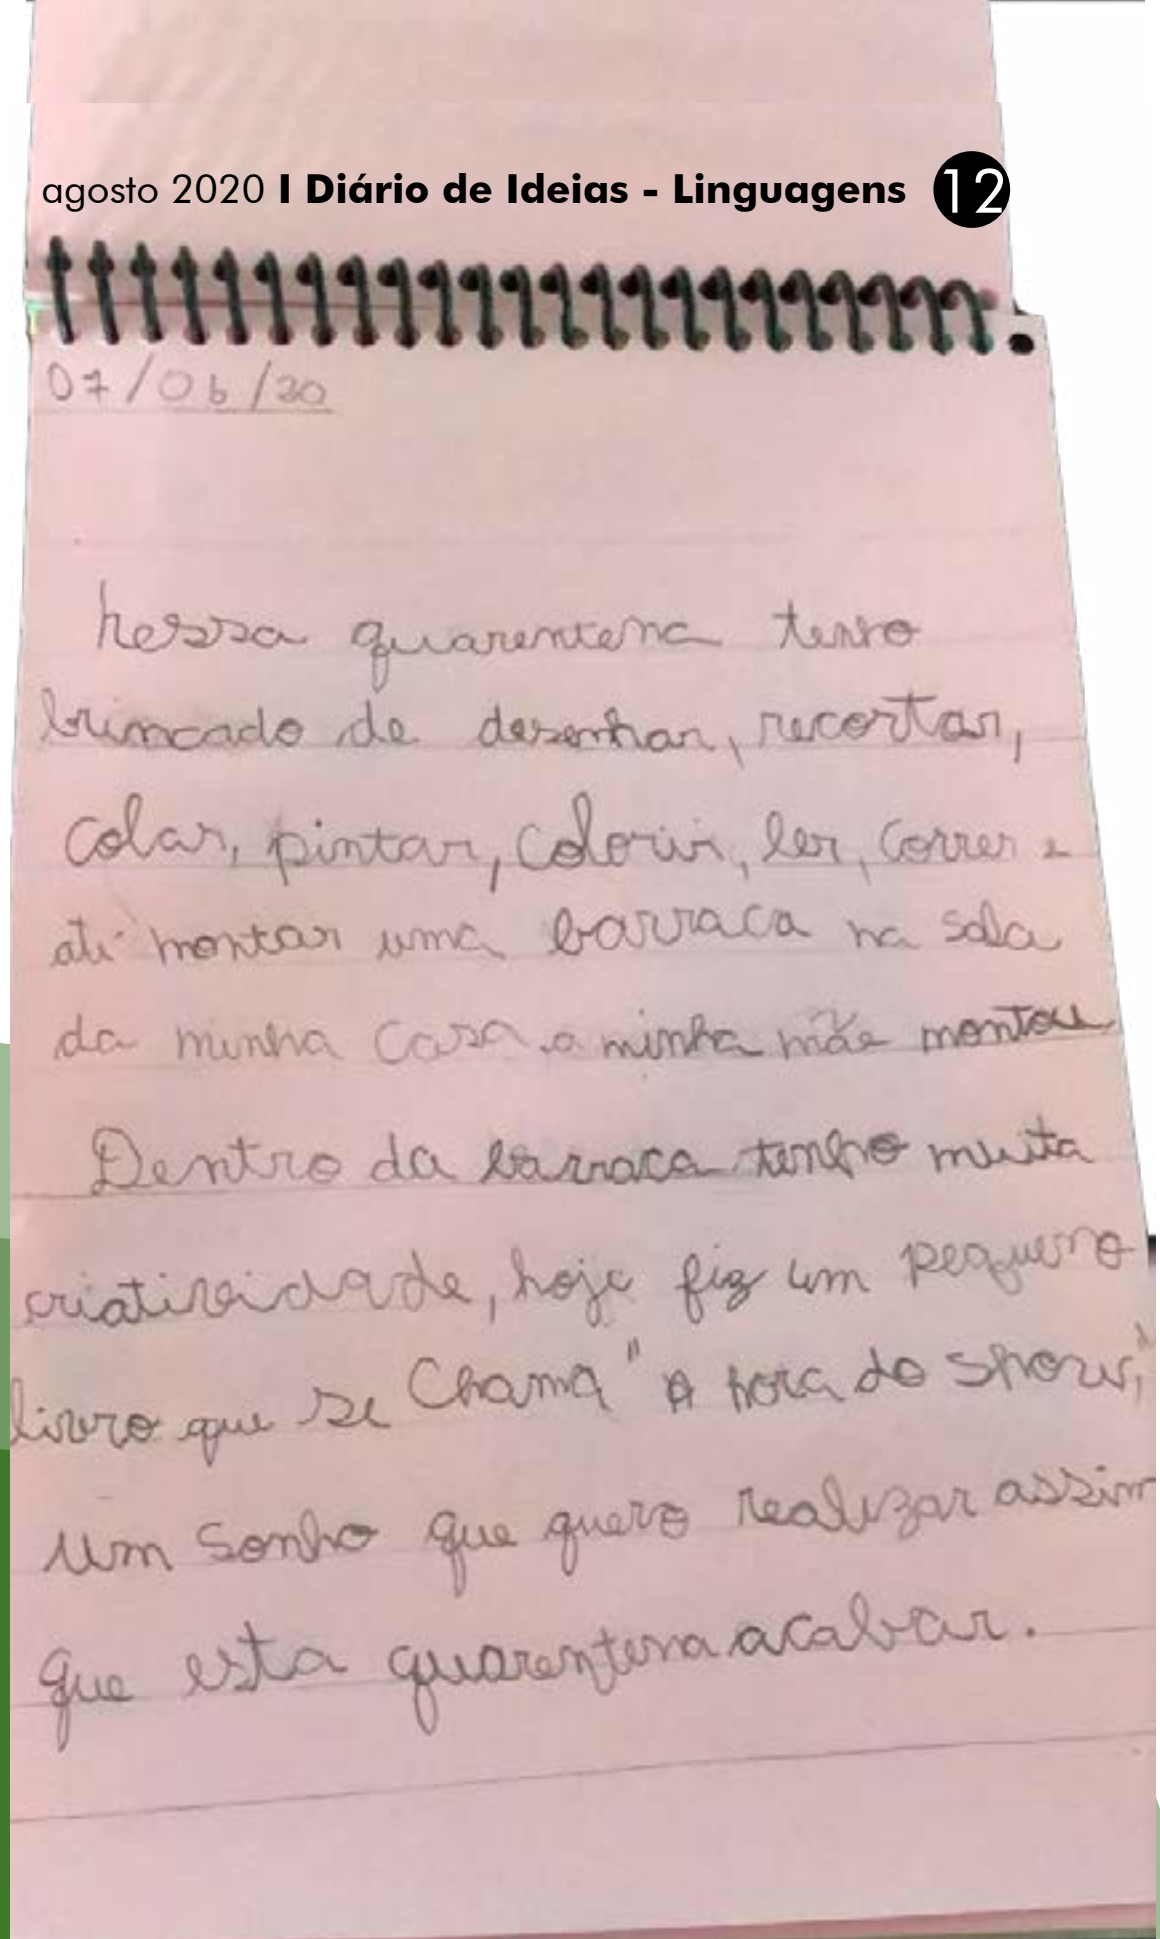 agosto 2020 I Diário de Ideias - Linguagens 12
07/06/20
nessa quarentena tenho
brincado de desenhar, recortar,
colar, pintar, colorir, ler, correr e
até montar uma barraca na sala
da minha casa a minha mãe montou
Dentro da barraca tenho muita
criatividade, hoje fiz um pequeno
livro que se chama "A hora do show,"
um sonho que quero realizar assim
que esta quarentena acabar.